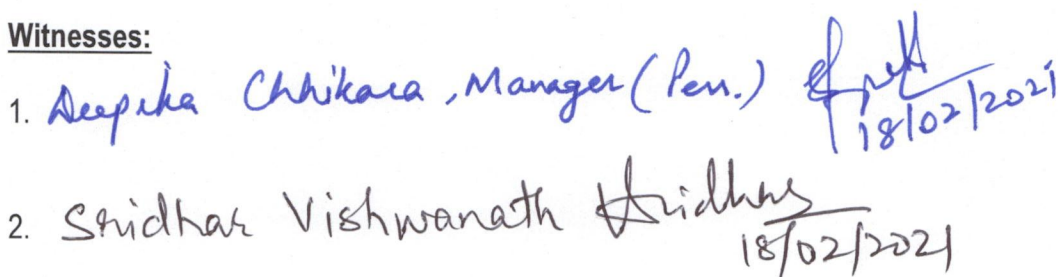 Witnesses:
1. Deepika Chhikara, Manager (Pers.)
18/02/2021
2. Sridhar Vishwanath Sridhar
18/02/2021